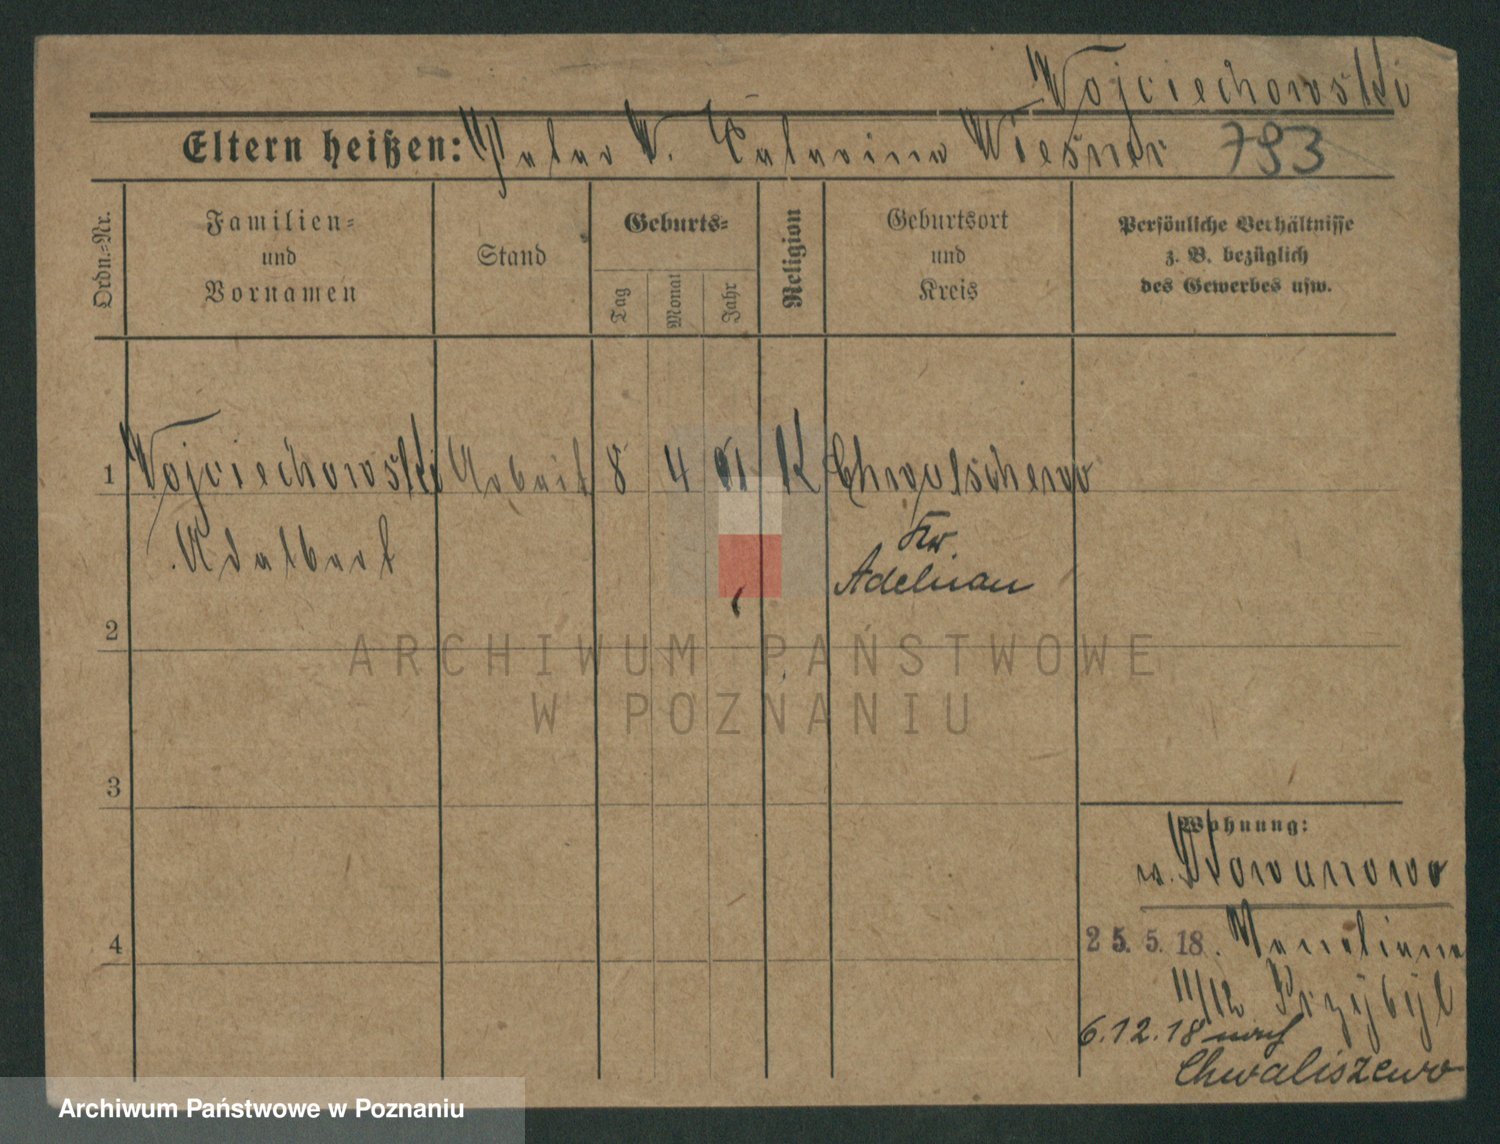 Wojciechowski
Eltern heißen: Peter W. Catarina Wiesner 793
Ordn.-Nr.
Familien- und Vornamen
Stand
Geburts-
Tag
Monat
Jahr
Religion
Geburtsort und Kreis
Persönliche Verhältnisse z. B. bezüglich des Gewerbes usw.
1 Wojciechowski Arbeit 8 4 91 K
Adalbert
Kr.
Adelnau
2
3
4
Wohnung:
25. 5. 18.
11/12 Przybyl
6.12.18 nach
Chwaliszewo
ARCHIWUM PAŃSTWOWE
W POZNANIU
Archiwum Państwowe w Poznaniu